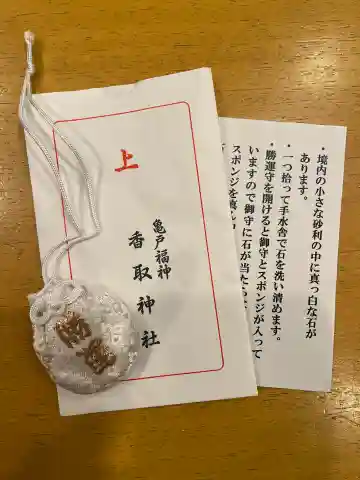 上
亀戸福神
香取神社
勝運
・境内の小さな砂利の中に真っ白な石が
あります。
・一つ拾って手水舎で石を洗い清めます。
・勝運守を開けると御守とスポンジが入って
いますので御守に石が当たら
スポンジを真ん